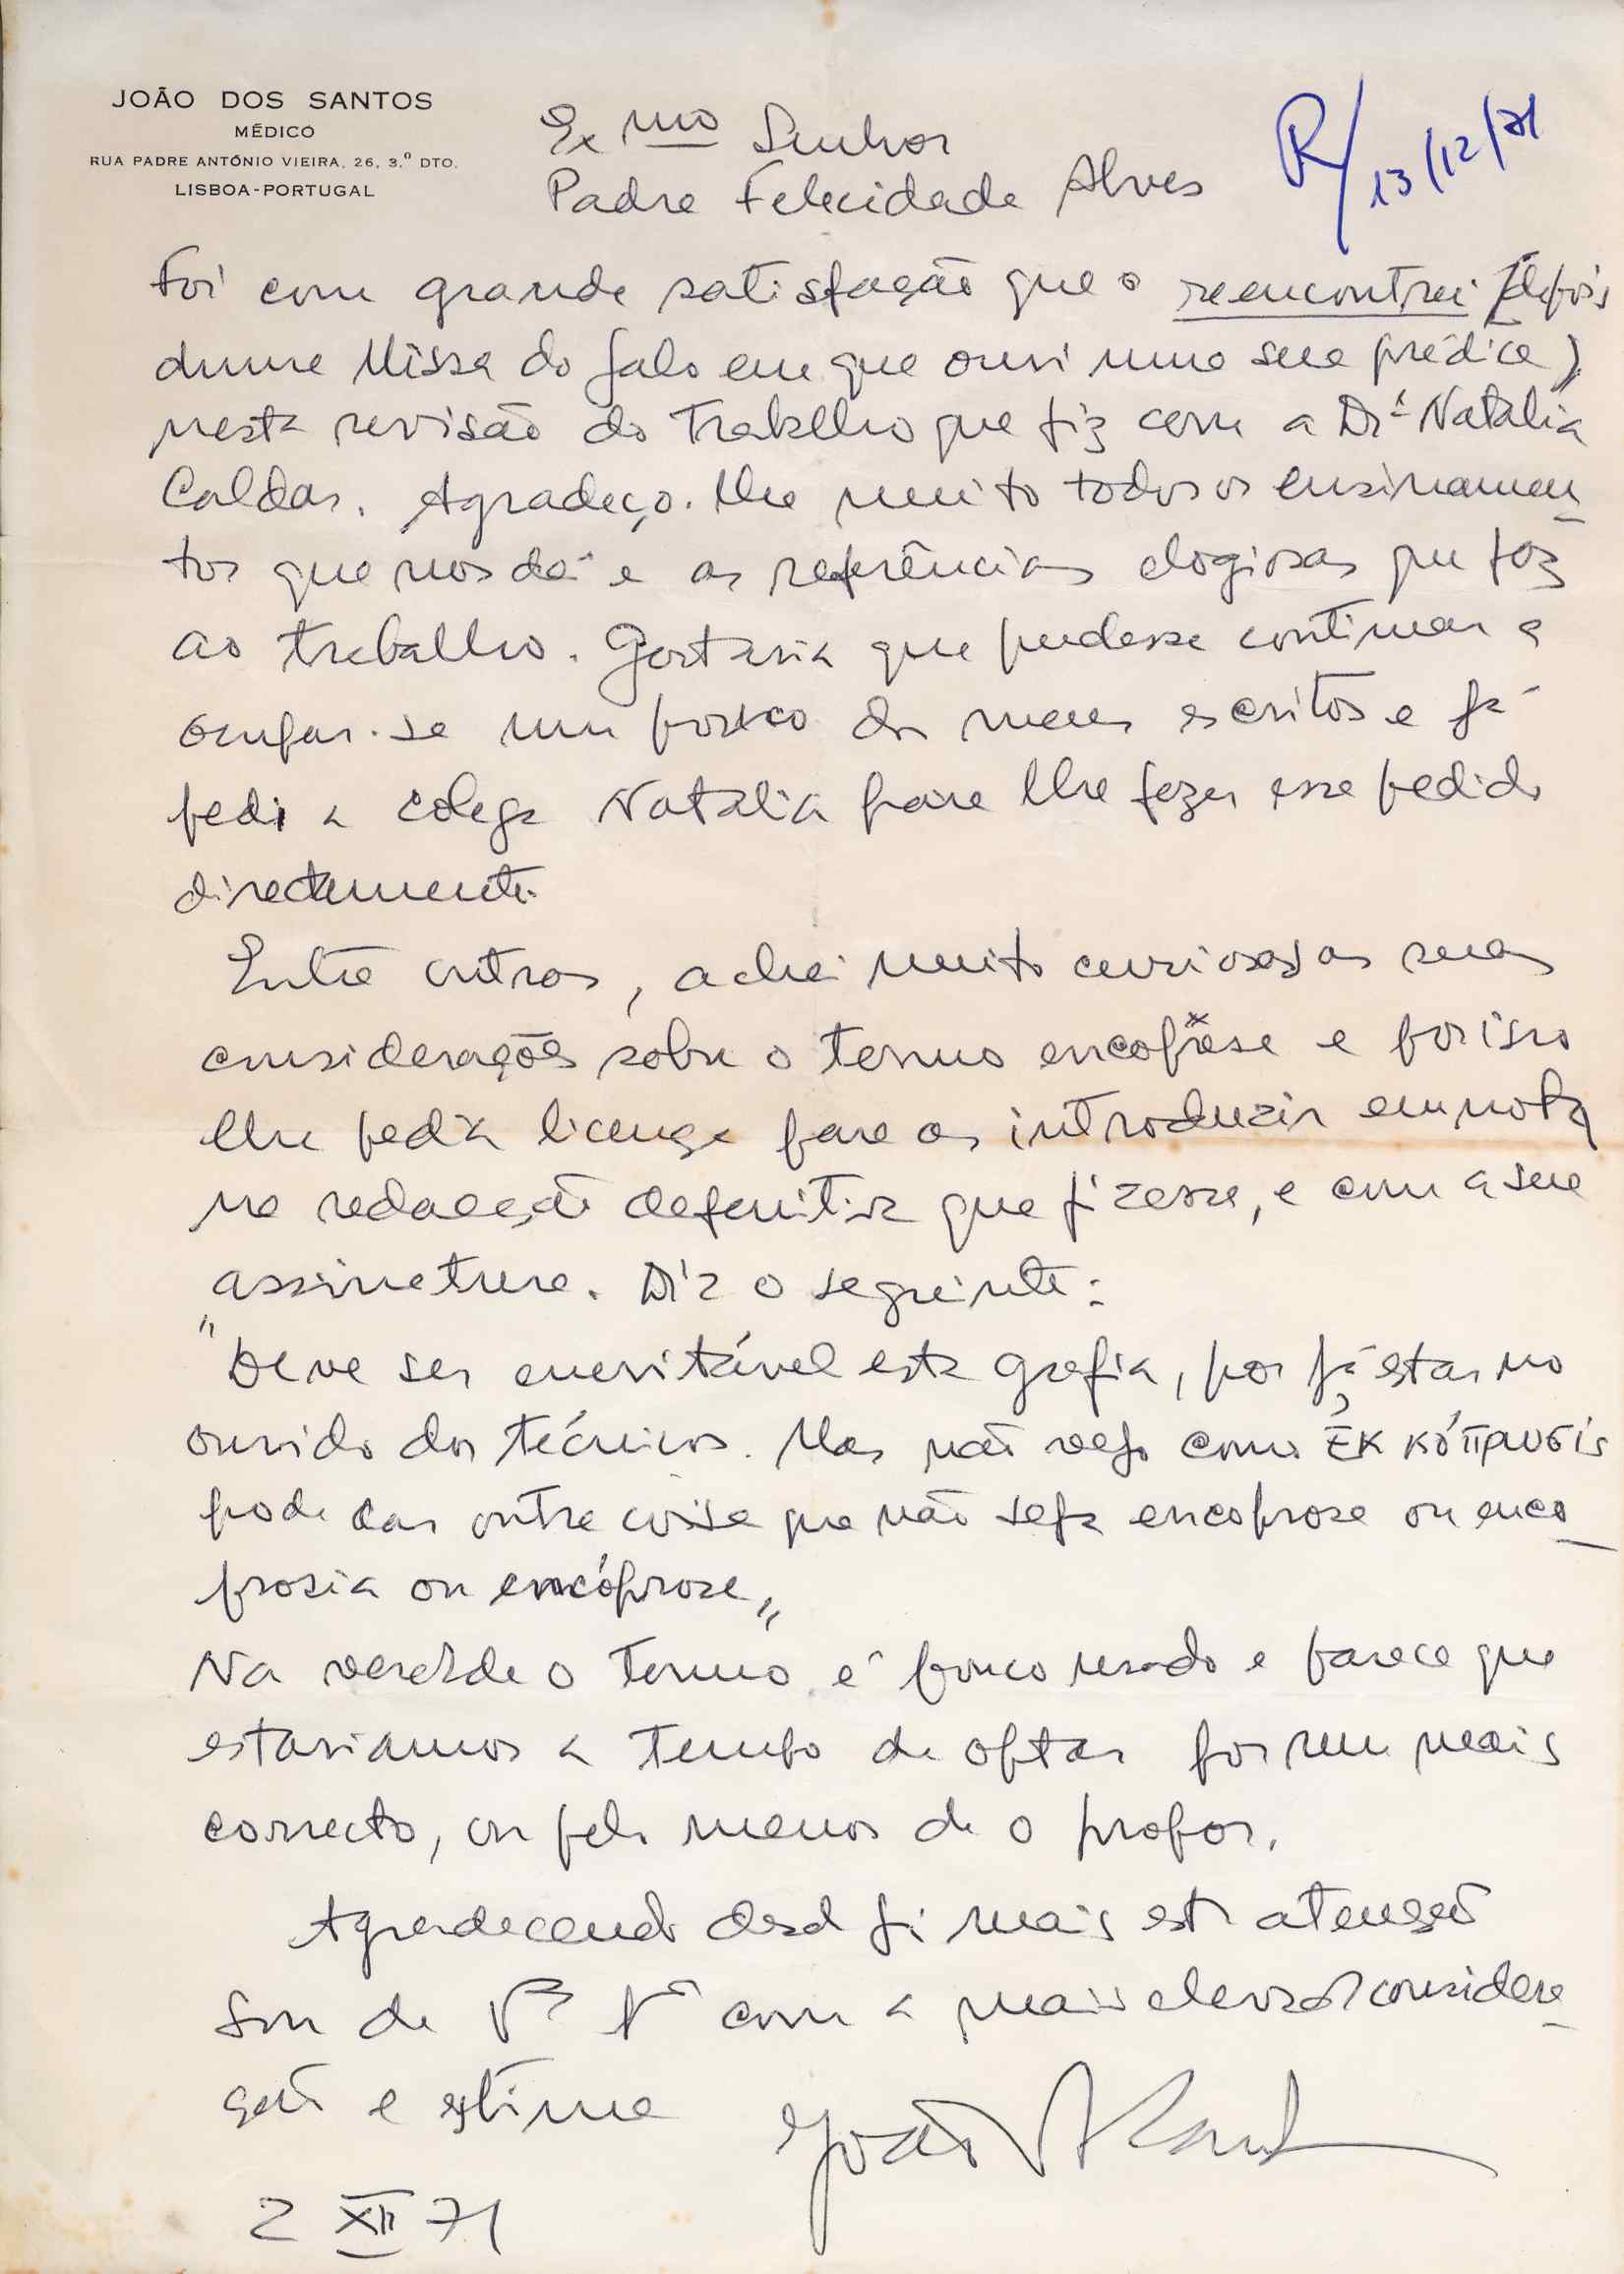 JOÃO DOS SANTOS
MÉDICO
RUA PADRE ANTÓNIO VIEIRA, 26, 3.º DTO.
LISBOA-PORTUGAL
Exmo Senhor
Padre Felicidade Alves
R/ 13/12/71
Foi com grande satisfação que o reencontrei (depois
duma Missa do galo em que ouvi uma sua prédica)
nesta revisão do trabalho que fiz com a Drª Natalia
Caldas. Agradeço-lhe muito todos os ensinamen-
tos que nos dá e as referências elogiosas que faz
ao trabalho. Gostaria que pudesse continuar a
ocupar-se um pouco dos meus escritos e já
pedi a colega Natalia para lhe fazer esse pedido
directamente.
Entre outros, achei muito curiosas as suas
considerações sobre o termo encoprese e por isso
lhe pedia licença para as introduzir em nota
na redacção defenitiva que fizesse, e com a sua
assinatura. Diz o seguinte:
"Deve ser enevitável esta grafia, por já estar no
ouvido dos técnicos. Mas não vejo como ἐκ κόπρυσίς
pode dar outra coisa que não seja encoprose ou enco-
prosia ou encóprose"
Na verdade o termo é pouco usado e parece que
estariamos a tempo de optar por um mais
correcto, ou pelo menos de o propor.
Agradecendo desde já mais esta atenção
Sou de Vª Rª com a mais elevada considera-
ção e estima João Santos
2 XII 71